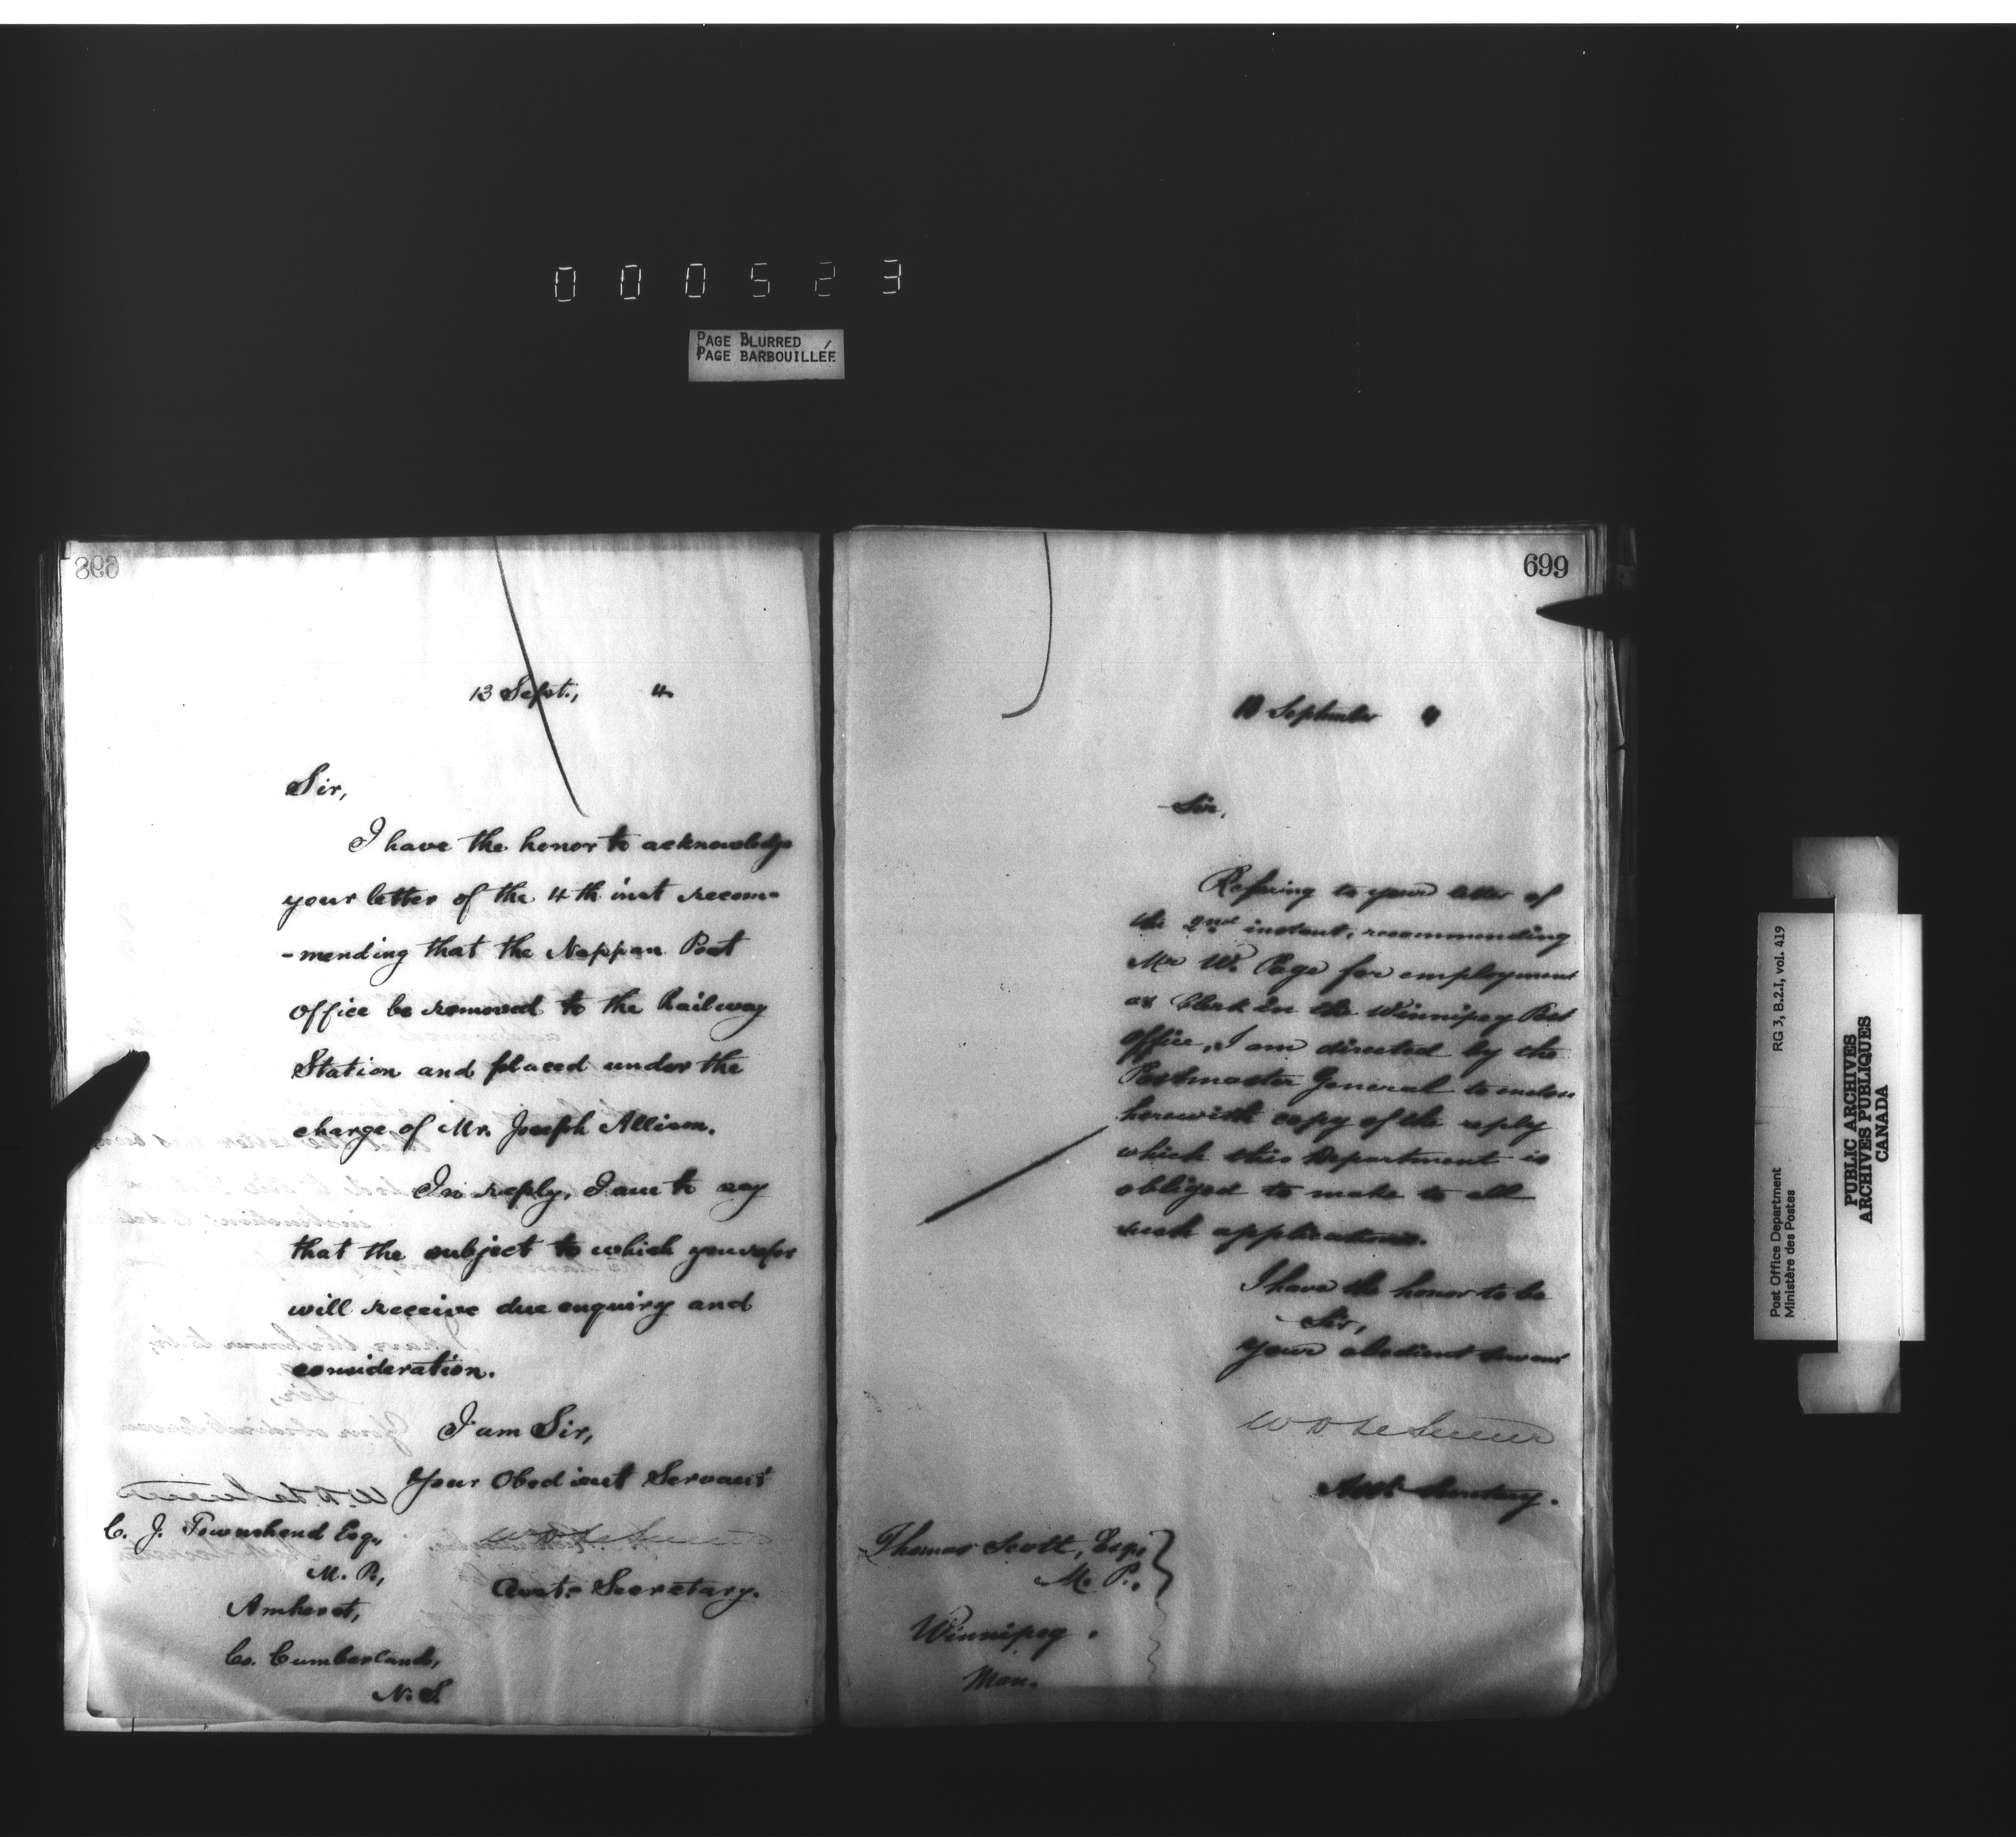 000523
PAGE BLURRED
PAGE BARBOUILLÉE
698
13 Sept., 4
Sir,
I have the honor to acknowledge
your letter of the 4th inst recom-
-mending that the Nappan Post
Office be removed to the Railway
Station and placed under the
charge of Mr. Joseph Allison.
In reply, I am to say
that the subject to which you refer
will receive due enquiry and
consideration.
I am Sir,
Your Obedient Servant
Asst. Secretary.
C. J. Townshend Esq.,
M. P.,
Amherst,
Co. Cumberland,
N. S.
699
13 September 4
Sir,
Refering to your letter of
the 2nd instant, recommending
Mr W. Page for employment
as Clerk in the Winnipeg Post
Office, I am directed by the
Postmaster General to enclose
herewith copy of the reply
which this Department is
obliged to make to all
such applications.
I have the honor to be
Sir,
Your obedient servant
Asst. Secretary.
Thomas Scott, Esq.,
M. P.,
Winnipeg.
Man.
Post Office Department
Ministère des Postes
RG 3, B.2.I, vol. 419
PUBLIC ARCHIVES
ARCHIVES PUBLIQUES
CANADA